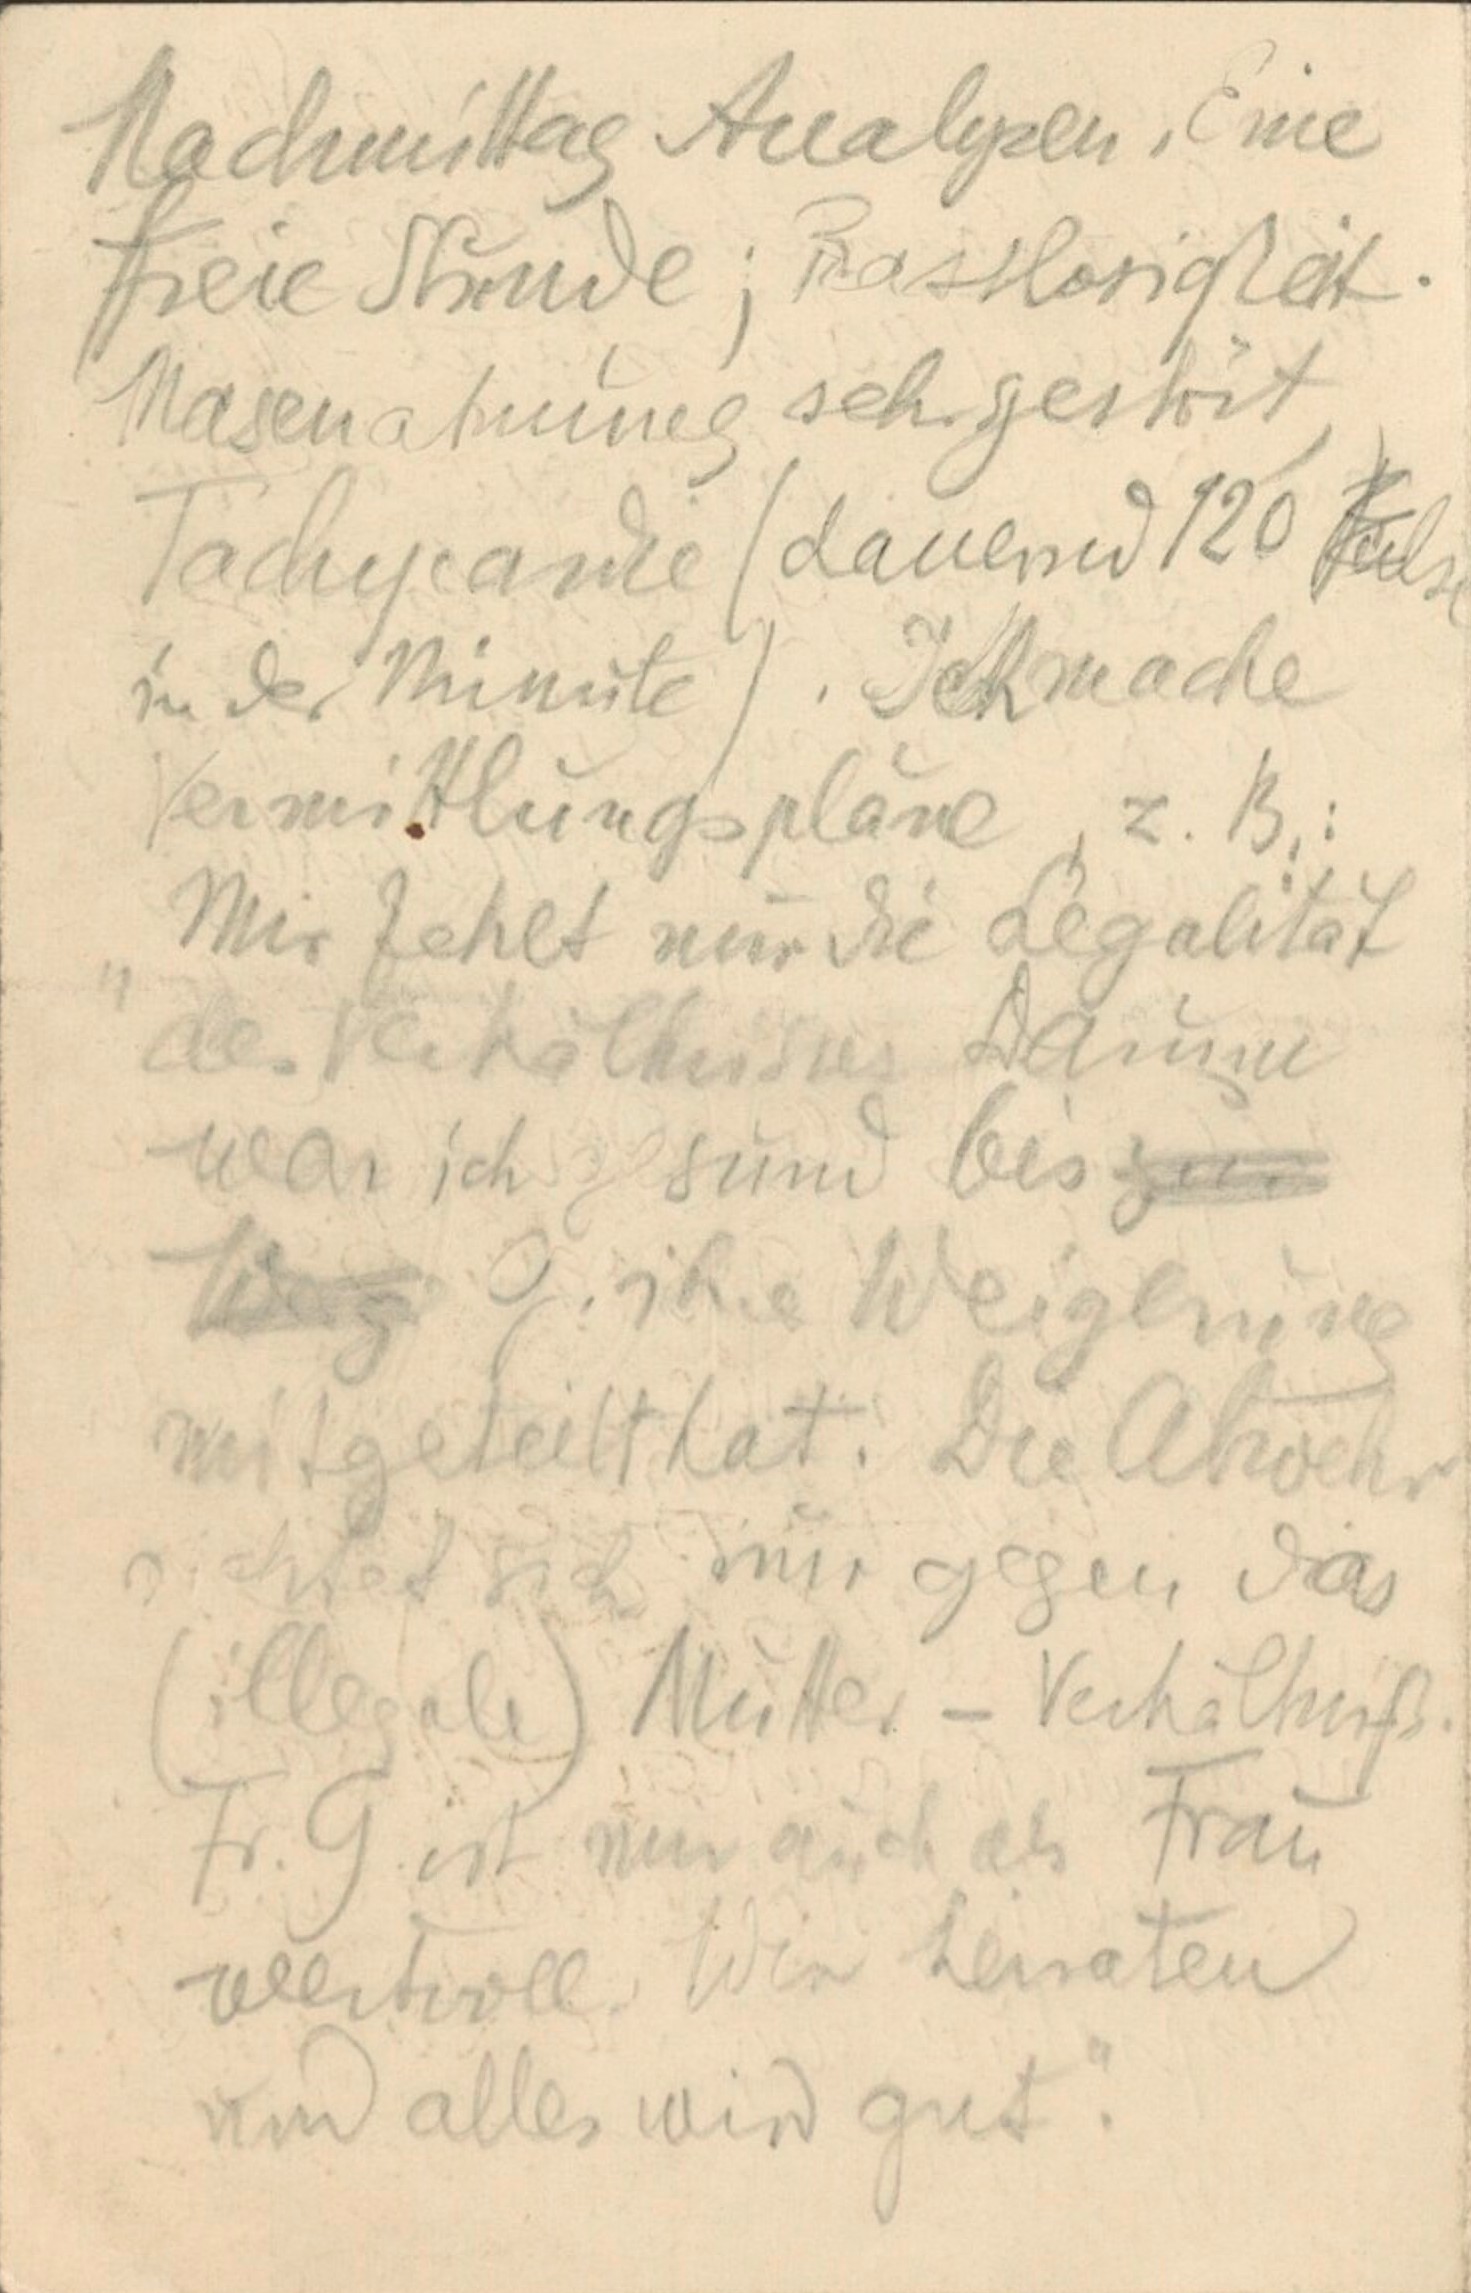 Nachmittag Analysen. Eine
freie Stunde; Rastlosigkeit.
Nasenatmung sehr gestört,
Tachycardie (dauernd 120 Pulse
in der Minute). Ich mache
Vermittlungspläne, z. B.:
"Mir fehlt nur die Legalität
des Verhältnisses Darum
war ich gesund bis zur
G. ihre Weigerung
mitgeteilt hat. Die Abwehr
richtet sich nur gegen das
(illegale) Mutter-Verhältniß.
Fr. G ist mir auch als Frau
wertvoll. Wir heiraten
und alles wird gut".